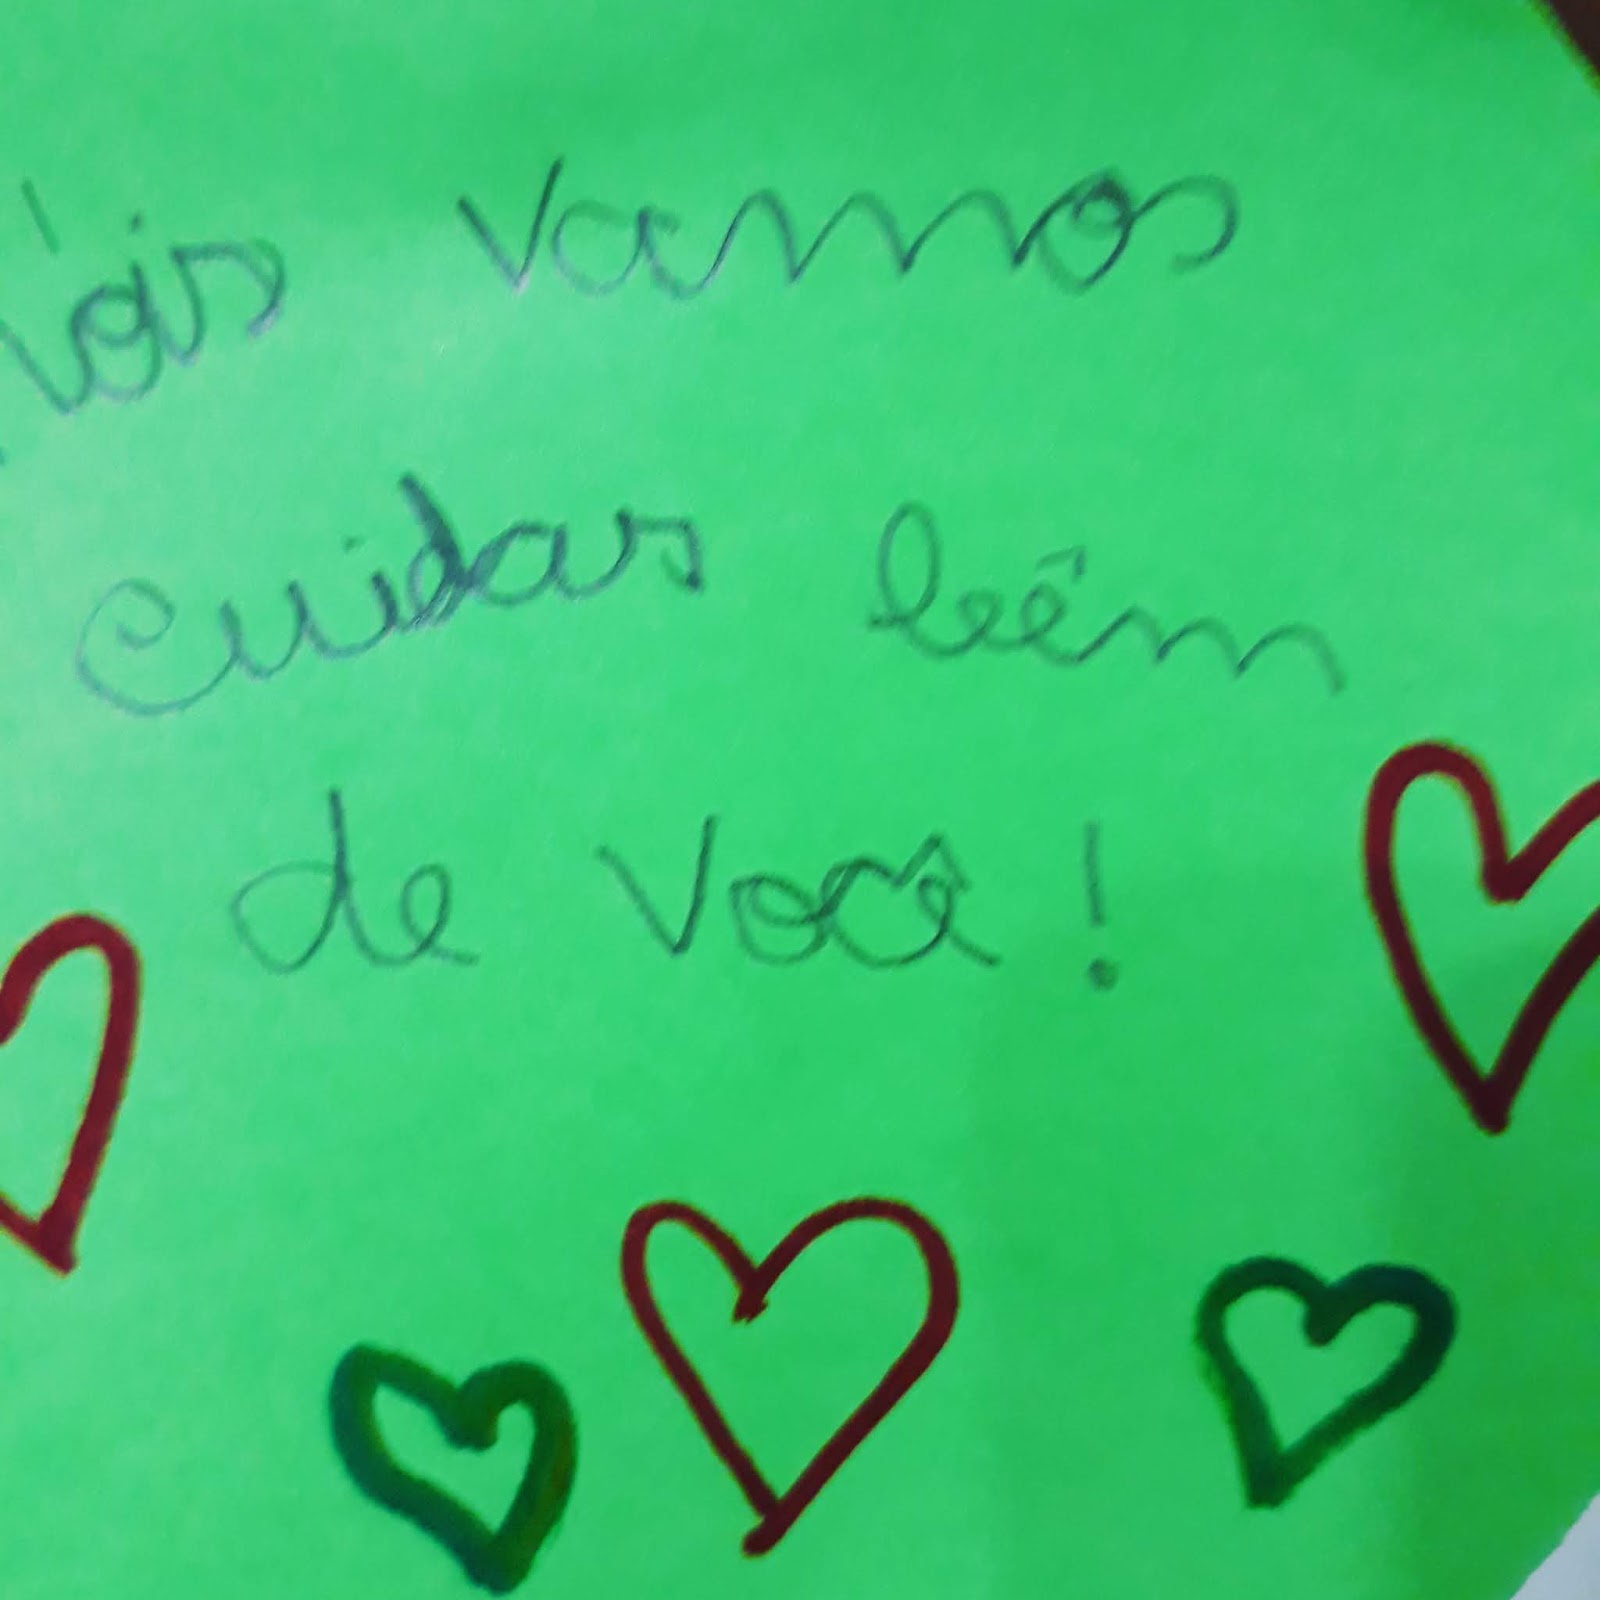 Nóis vamos
cuidar bêm
de você!